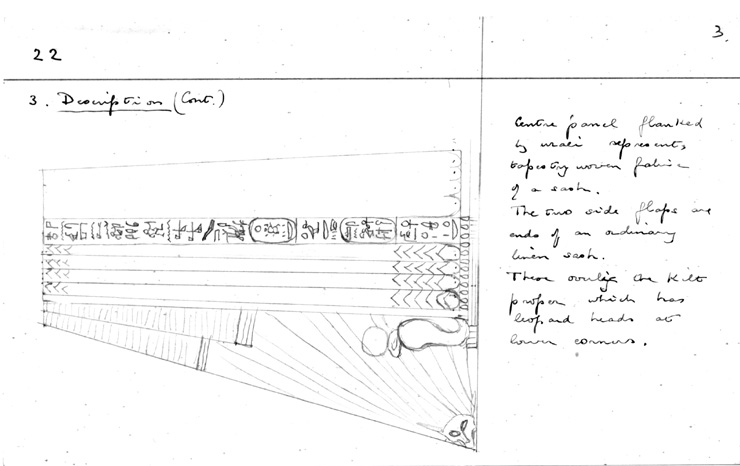 3.
22
3. Description (Cont.)
Centre panel flanked
by uraei represents
tapestry woven fabric
of a sash.
The two side flaps are
ends of an ordinary
linen sash.
These overlie the kilt
proper which has
leopard heads at
lower corners.